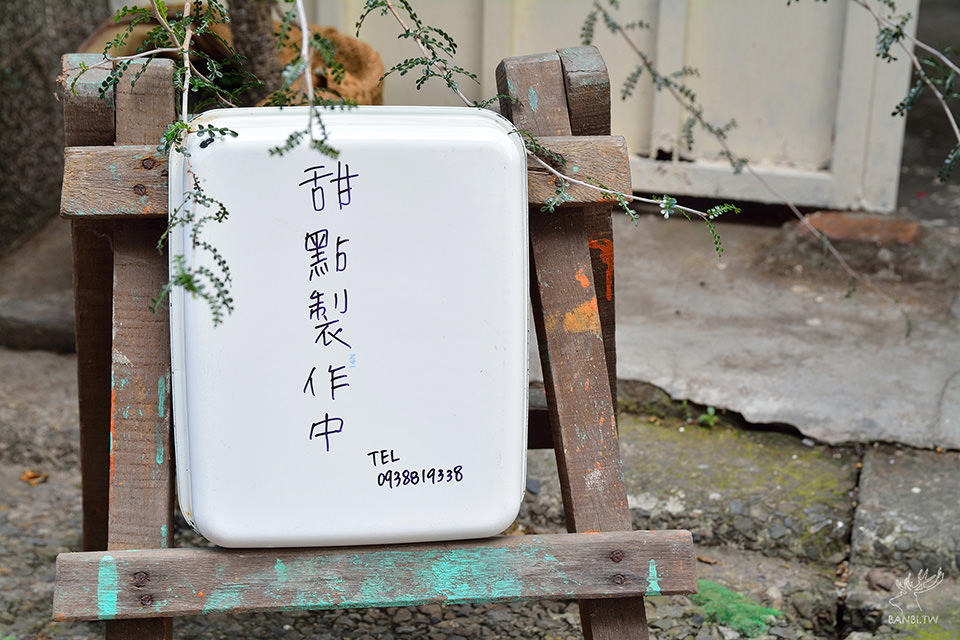 甜點製作中
TEL
0938819338
BANBI.TW